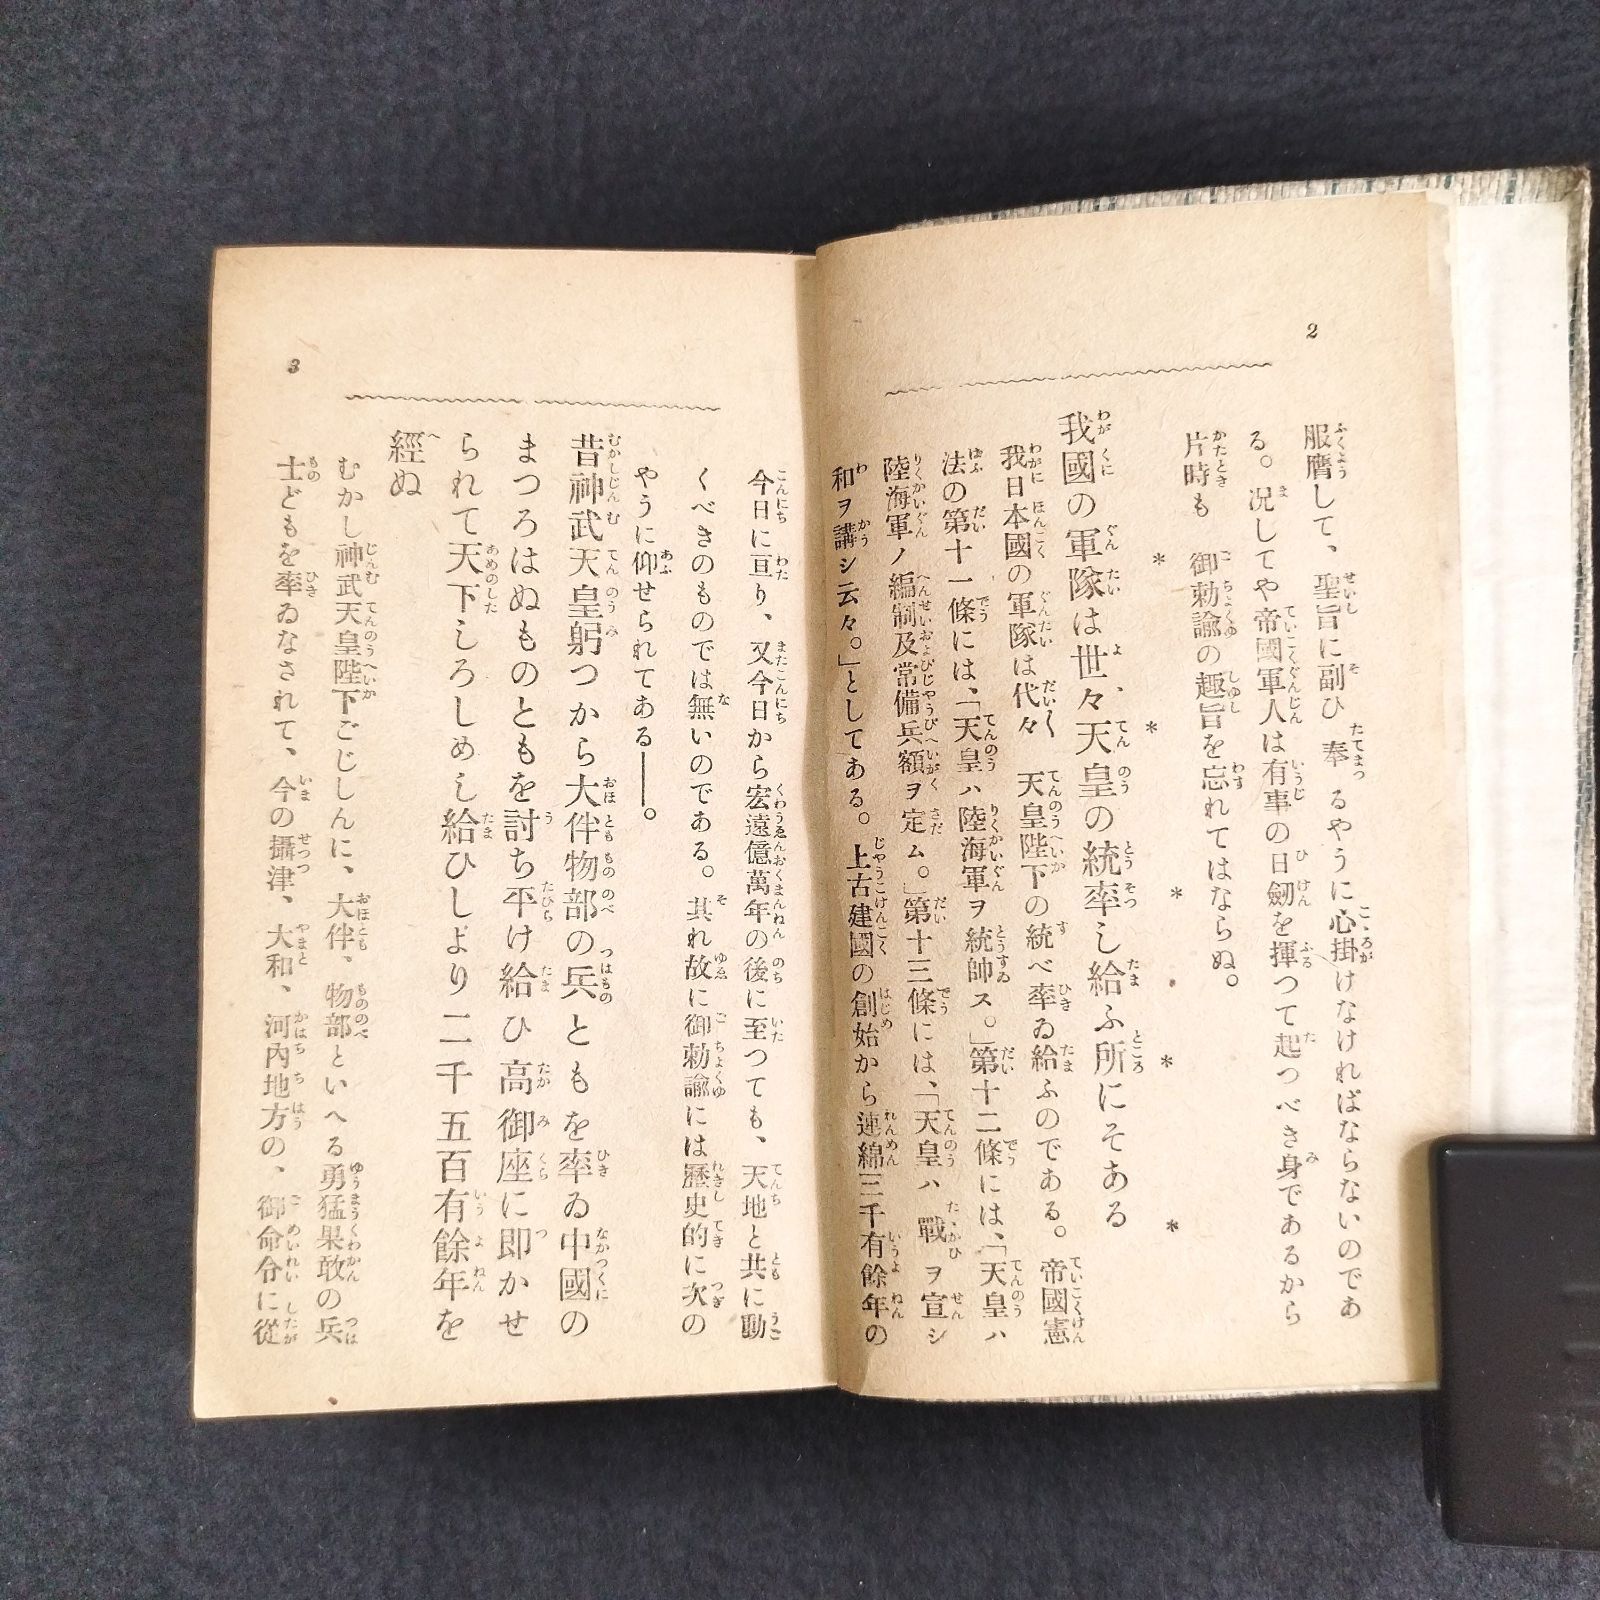 2
服膺して、聖旨に副ひ奉るやうに心掛けなければならないのであ
る。况してや帝國軍人は有事の日劒を揮つて起つべき身であるから
片時も　御勅諭の趣旨を忘れてはならぬ。
＊　＊　＊　＊　＊
我國の軍隊は世々天皇の統率し給ふ所にそある
我日本國の軍隊は代々　天皇陛下の統べ率ゐ給ふのである。帝國憲
法の第十一條には、「天皇ハ陸海軍ヲ統帥ス。」第十二條には、「天皇ハ
陸海軍ノ編制及常備兵額ヲ定ム。」第十三條には、「天皇ハ戰ヲ宣シ
和ヲ講シ云々。」としてある。上古建國の創始から連綿三千有餘年の
3
今日に亘り、又今日から宏遠億萬年の後に至つても、天地と共に動
くべきのものでは無いのである。其れ故に御勅諭には歷史的に次の
やうに仰せられてある――。
昔神武天皇躬つから大伴物部の兵ともを率ゐ中國の
まつろはぬものともを討ち平け給ひ高御座に即かせ
られて天下しろしめし給ひしより二千五百有餘年を
經ぬ
むかし神武天皇陛下ごじしんに、大伴、物部といへる勇猛果敢の兵
士どもを率ゐなされて、今の攝津、大和、河內地方の、御命令に從